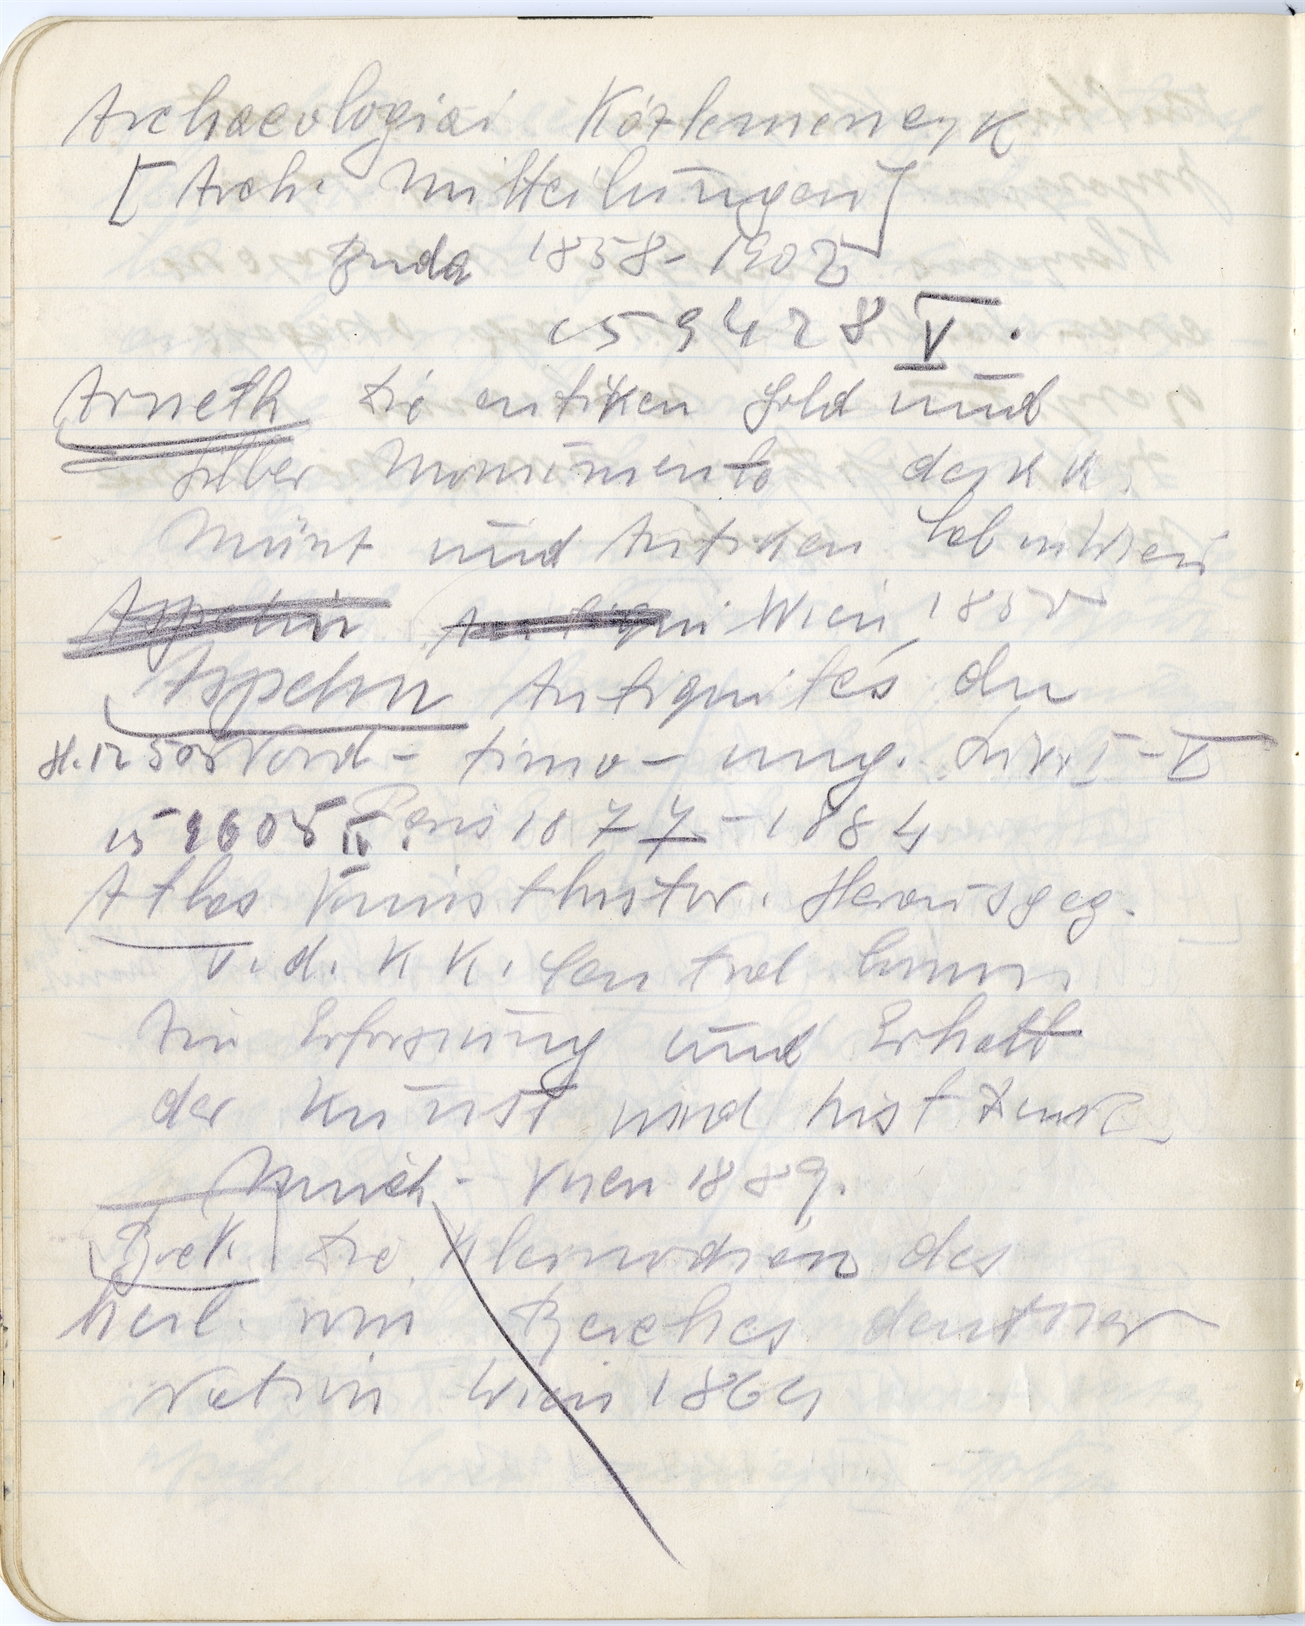 Archaeologiai Közlemények
[Arch. Mitteilungen]
Buda 1858-1902
59428 V.
Arneth Die antiken Gold und
Silber Monumente des k k.
Münz und Antiken Cab in Wien
Wien 1850
Aspelin Antiquités du
Nord- finno- oug. Livr I-V
Paris 1877-1884
Atlas Kunsthistor. Herausgeg.
v. d. K K. Central Comm.
Erforschung und Erhalt
der Kunst und hist Denk
Wien 1889.
Bock Die Kleinodien des
heil. röm Reiches deutscher
Nation Wien 1864